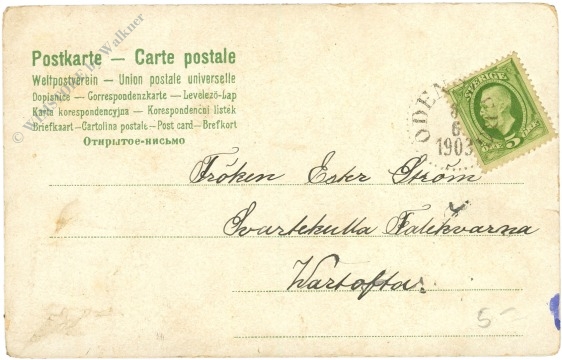 Postkarte — Carte postale
Weltpostverein — Union postale universelle
Dopisnice — Correspondenzkarte — Levelező-Lap
Karta korespondencyjna — Korespondenční listek
Briefkaart — Cartolina postale — Post card — Brefkort
Открытое-письмо
SVERIGE
5
ODEN
6
1903
Fröken Ester Ström
Svartekulla Falekvarna
Wartofta
5-